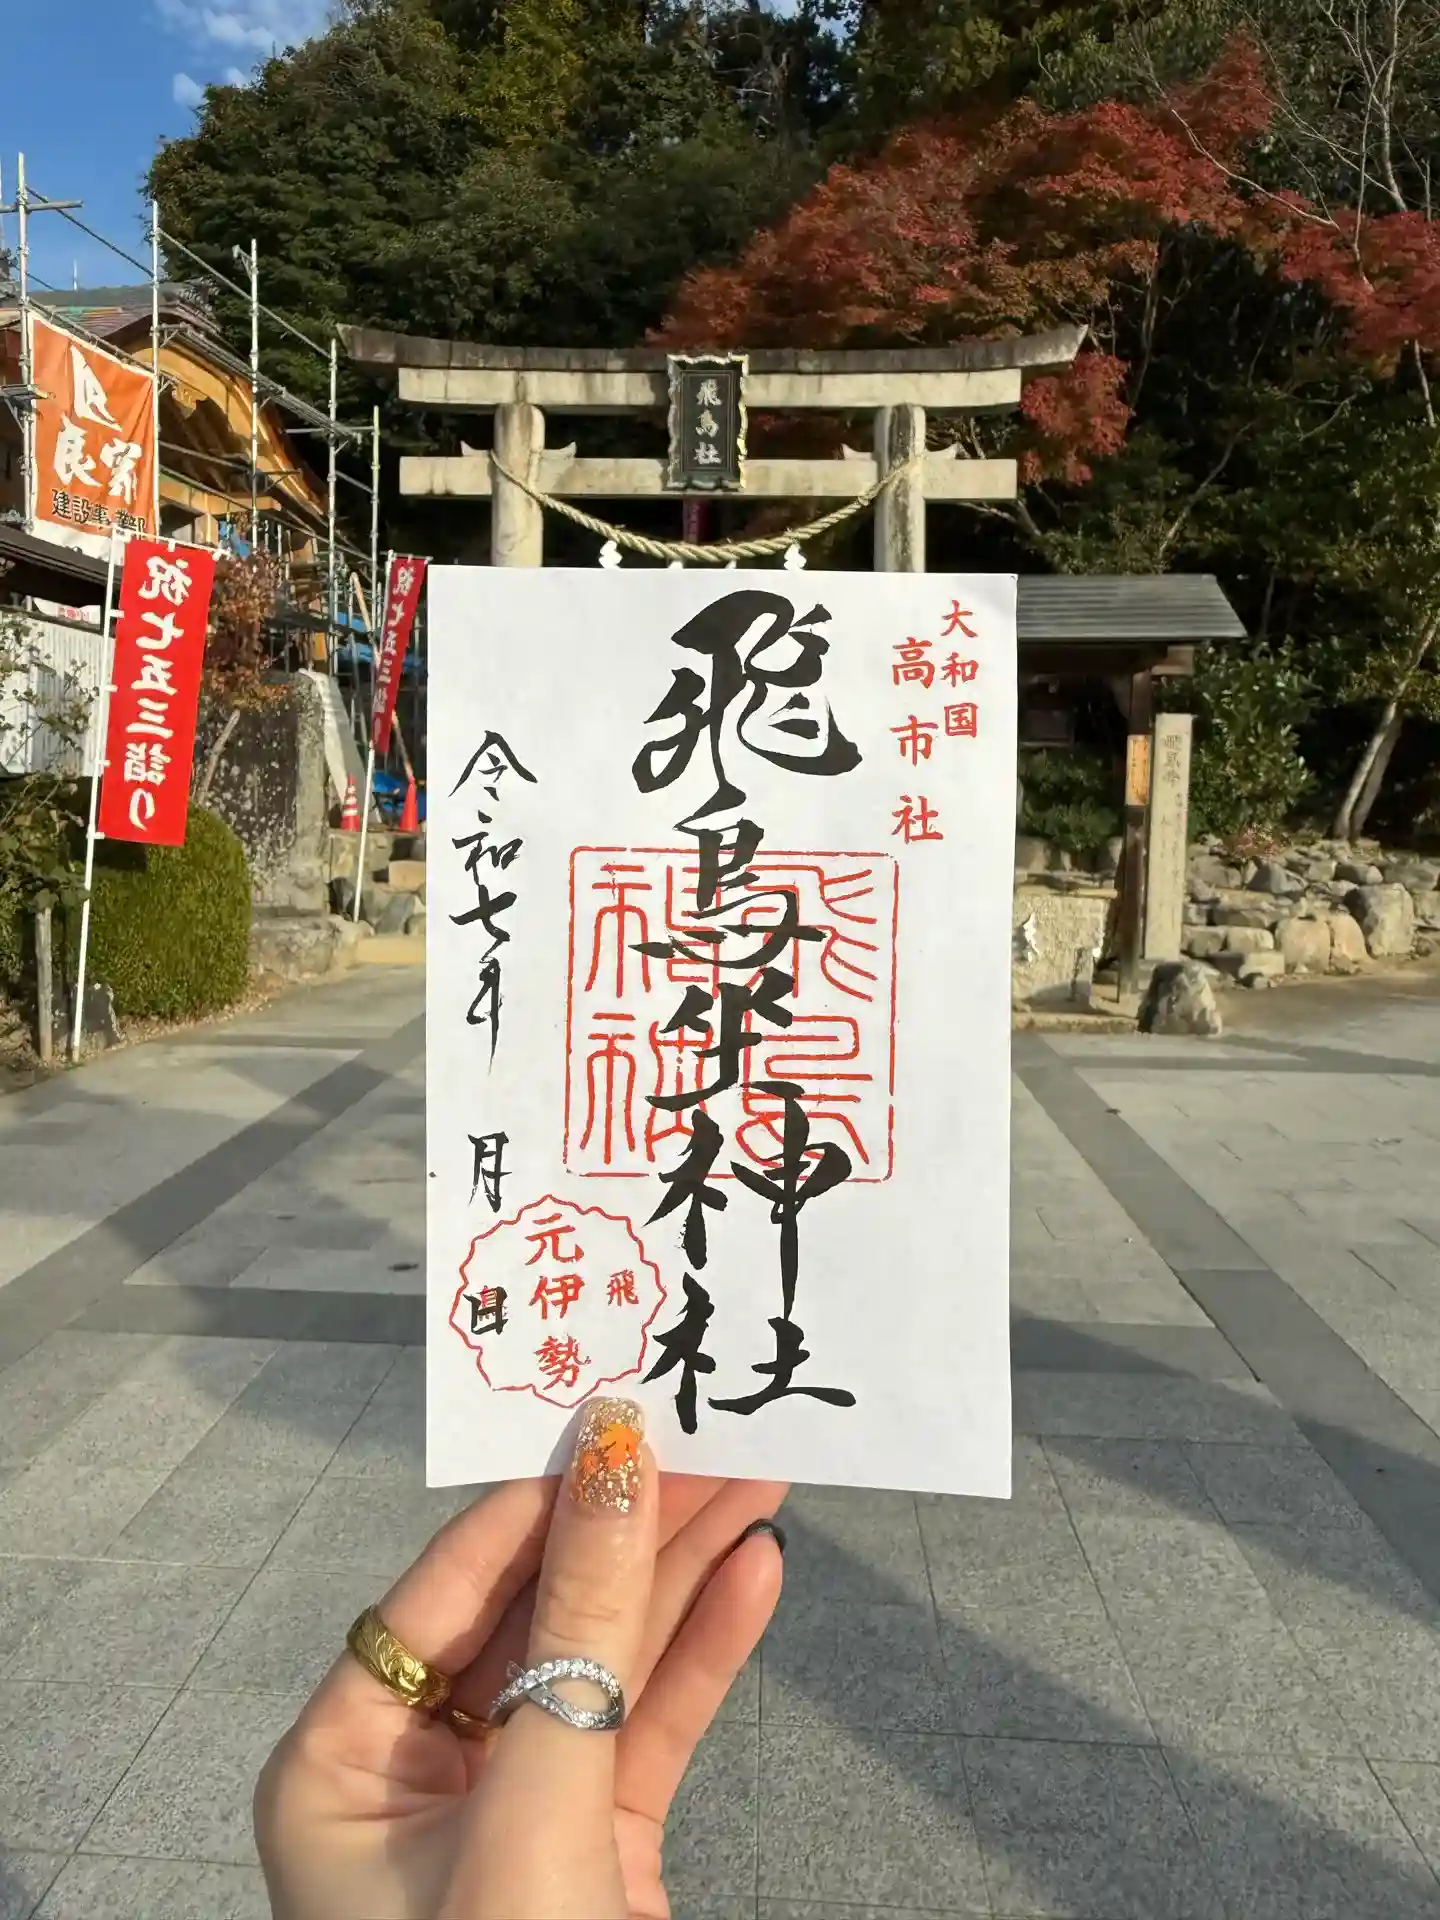 飛鳥社
良家
建設事業部
祝七五三詣り
祝七五三詣
大和国
高市社
飛鳥坐神社
令和七年
月
日
飛鳥坐神社
飛鳥
元伊勢